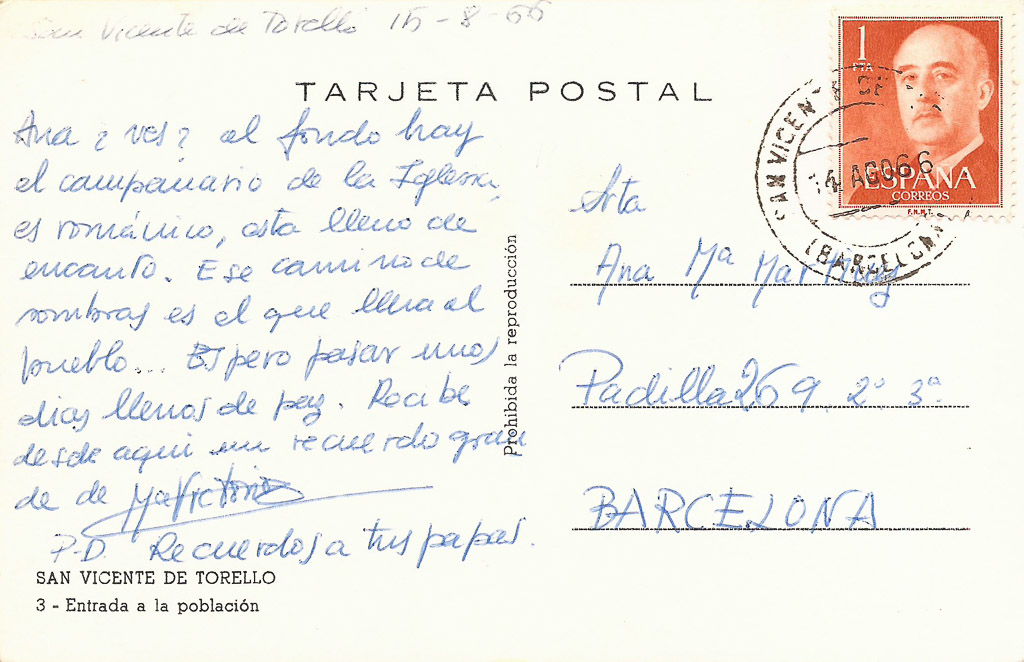 San Vicente de Torelló 15-8-66
TARJETA POSTAL
Ana ¿ves? al fondo hay
el campanario de la Iglesia,
es románico, esta lleno de
encanto. Ese camino de
sombras es el que lleva al
pueblo... Espero pasar unos
dias llenos de paz. Recibe
desde aqui un recuerdo gran
de de MaVictoria
P.D. Recuerdos a tus papas.
SAN VICENTE DE TORELLO
3 - Entrada a la población
Prohibida la reproducción
1
PTA
ESPAÑA
CORREOS
F.N.M.T.
SAN VICENTE DE
14 AGO 66
(BARCELONA)
Srta
Ana Mª Martínez
Padilla 269. 2º 3ª
BARCELONA